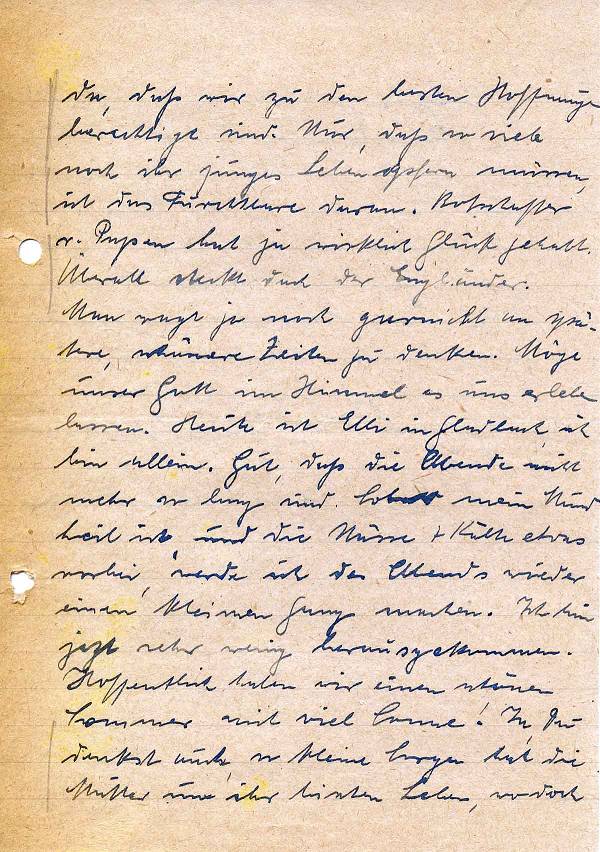 da, daß wir zu den besten Hoffnungen
berechtigt sind. Nur, daß so viele
noch ihr junges Leben opfern müssen,
ist das Furchtbare daran. Botschafter
v. Papen hat ja wirklich Glück gehabt.
Überall steckt doch der Engländer.
Man wagt ja noch garnicht an spä-
tere, schönere Zeiten zu denken. Möge
unser Gott im Himmel es uns erleben
lassen. Heute ist Elli in Gladbeck, ich
bin allein. Gut, daß die Abende nicht
mehr so lang sind. Sobald mein Mund
heil ist und die Nässe + Kälte etwas
vorbei, werde ich des Abends wieder
einen kleinen Gang machen. Ich bin
jezt sehr wenig herausgekommen.
Hoffentlich haben wir einen schönen
Sommer mit viel Sonne! Ja, Du
denkst auch, so kleine Sorgen hat die
Mutter und ihr Leben, wo doch